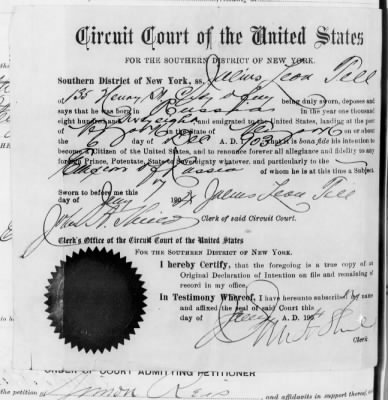 Circuit Court of the United States
FOR THE SOUTHERN DISTRICT OF NEW YORK.
Southern District of New York, ss. Julius Leon Tell
135 Henry St City & being duly sworn, deposes and
says that he was born in Russia in the year one thousand
eight hundred and and emigrated to the United States, landing at the port
of in the State of New York on or about
the 6 day of Dec A. D. 1903 that it is bona fide his intention to
become a Citizen of the United States, and to renounce forever all allegiance and fidelity to any
foreign Prince, Potentate, State or Sovereignty whatever, and particularly to the
of Russia of whom he is at this time a Subject.
Sworn to before me this
day of 190 Julius Leon Tell
John A. Shields Clerk of said Circuit Court.
Clerk's Office of the Circuit Court of the United States
FOR THE SOUTHERN DISTRICT OF NEW YORK.
I hereby Certify, that the foregoing is a true copy of an
Original Declaration of Intention on file and remaining of
record in my office.
In Testimony Whereof, I have hereunto subscribed my name
and affixed the seal of said Court this
day of A. D. 190
Clerk
ORDER OF COURT ADMITTING PETITIONER
Simon Reis, and affidavits in support thereof,